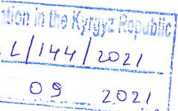 tion in the Kyrgyz Republic
L/144/2021
09 2021